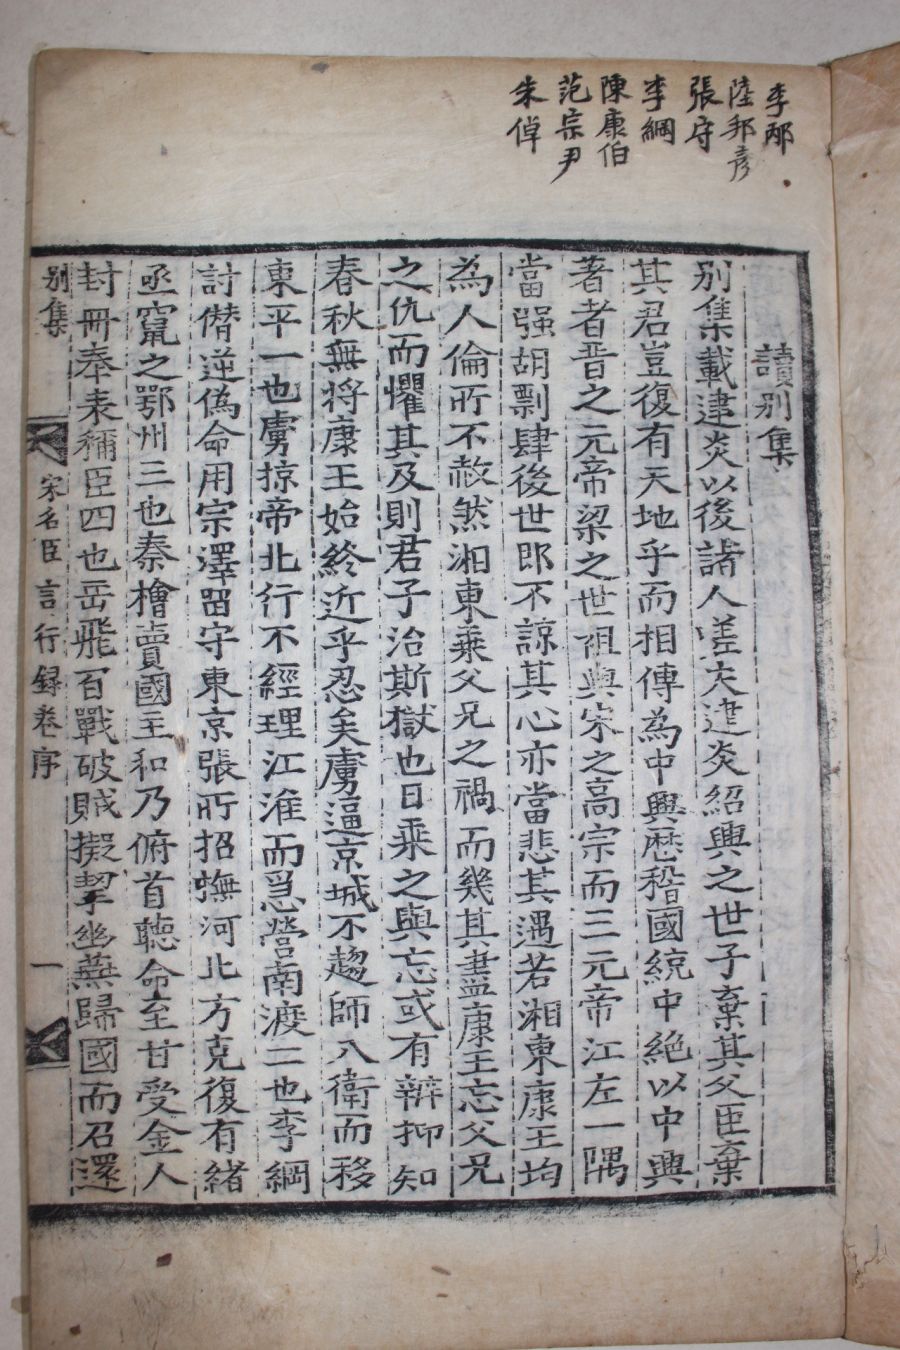 李邴
陸邦彦
張守
李綱
陳康伯
范宗尹
朱倬
讀別集
別集載建炎以後諸人嗟夫建炎紹興之世子棄其父臣棄
其君豈復有天地乎而相傳為中興歷稽國統中絶以中興
著者晋之元帝梁之世祖與宋之高宗而三元帝江左一隅
當强胡剽肆後世即不諒其心亦當悲其遇若湘東康王均
為人倫所不赦然湘東乗父兄之禍而幾其盡康王忘父兄
之仇而懼其及則君子治斯獄也曰乗之與忘或有辨抑知
春秋無将康王始終近乎忍矣虜逼京城不趨師入衛而移
東平一也虜掠帝北行不經理江淮而亟營南渡二也李綱
討僣逆偽命用宗澤留守東京張所招撫河北方克復有緒
亟竄之鄂州三也秦檜賣國主和乃俯首聽命至甘受金人
封冊奉表稱臣四也岳飛百戰破賊擬挈幽燕歸國而召還
別集
宋名臣言行録卷序
一